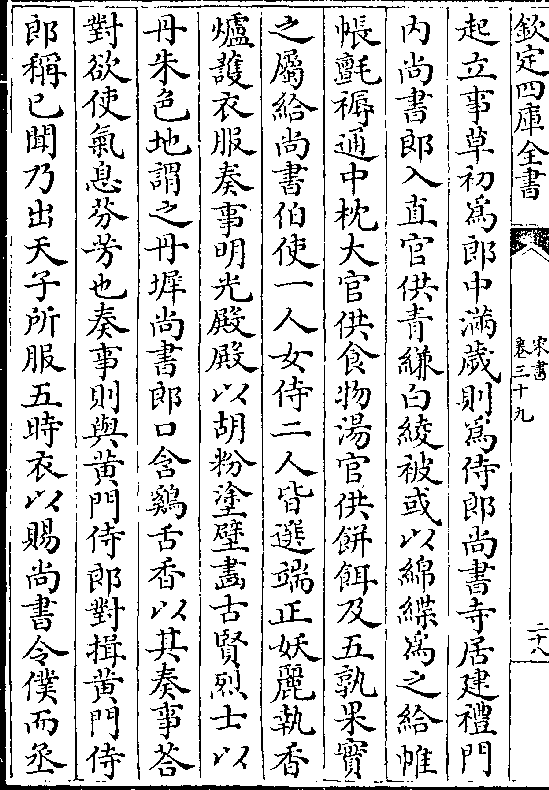 欽定四庫全書
宋書
卷三十九
二十八
起立事草初爲郎中滿歲則爲侍郎尚書寺居建禮門
內尚書郎入直官供青縑白綾被或以綿緤爲之給帷
帳氈褥通中枕大官供食物湯官供餅餌及五孰果實
之屬給尚書伯使一人女侍二人皆選端正妖麗執香
爐護衣服奏事明光殿殿以胡粉塗壁畫古賢烈士以
丹朱色地謂之丹墀尚書郎口含鷄舌香以其奏事荅
對欲使氣息芬芳也奏事則與黄門侍郎對揖黄門侍
郎稱已聞乃出天子所服五時衣以賜尚書令僕而丞